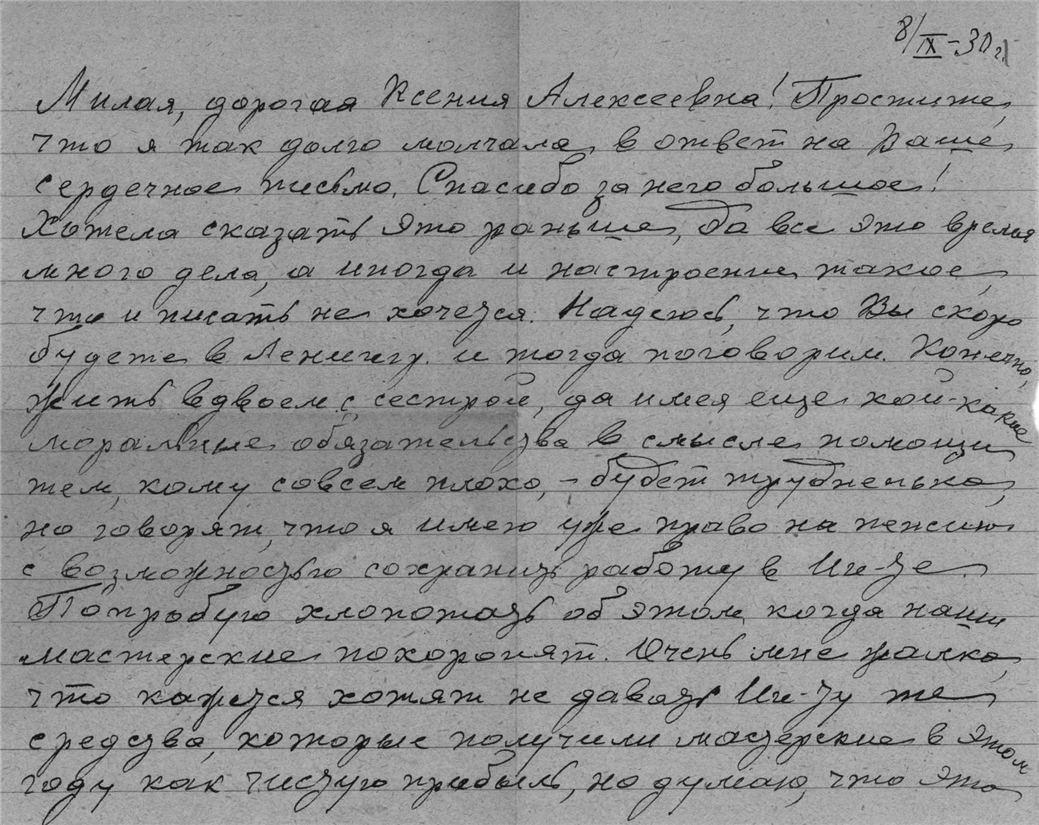 8/IX-30 г.
Милая, дорогая Ксения Алексеевна! Простите,
что я так долго молчала в ответ на Ваше
сердечное письмо. Спасибо за него большое!
Хотела сказать это раньше, да все это время
много дела, а иногда и настроение такое,
что и писать не хочется. Надеюсь, что Вы скоро
будете в Ленингр. и тогда поговорим. Конечно,
жить вдвоем с сестрой, да имея еще кой-какие
моральные обязательства в смысле помощи
тем, кому совсем плохо, - будет трудненько,
но говорят, что я имею уже право на пенсию
с возможностью сохранить работу в Ин-те.
Попробую хлопотать об этом, когда наши
мастерские похоронят. Очень мне жалко,
что кажется хотят не давать Ин-ту те
средства, которые получили мастерские в этом
году как чистую прибыль, но думаю, что это